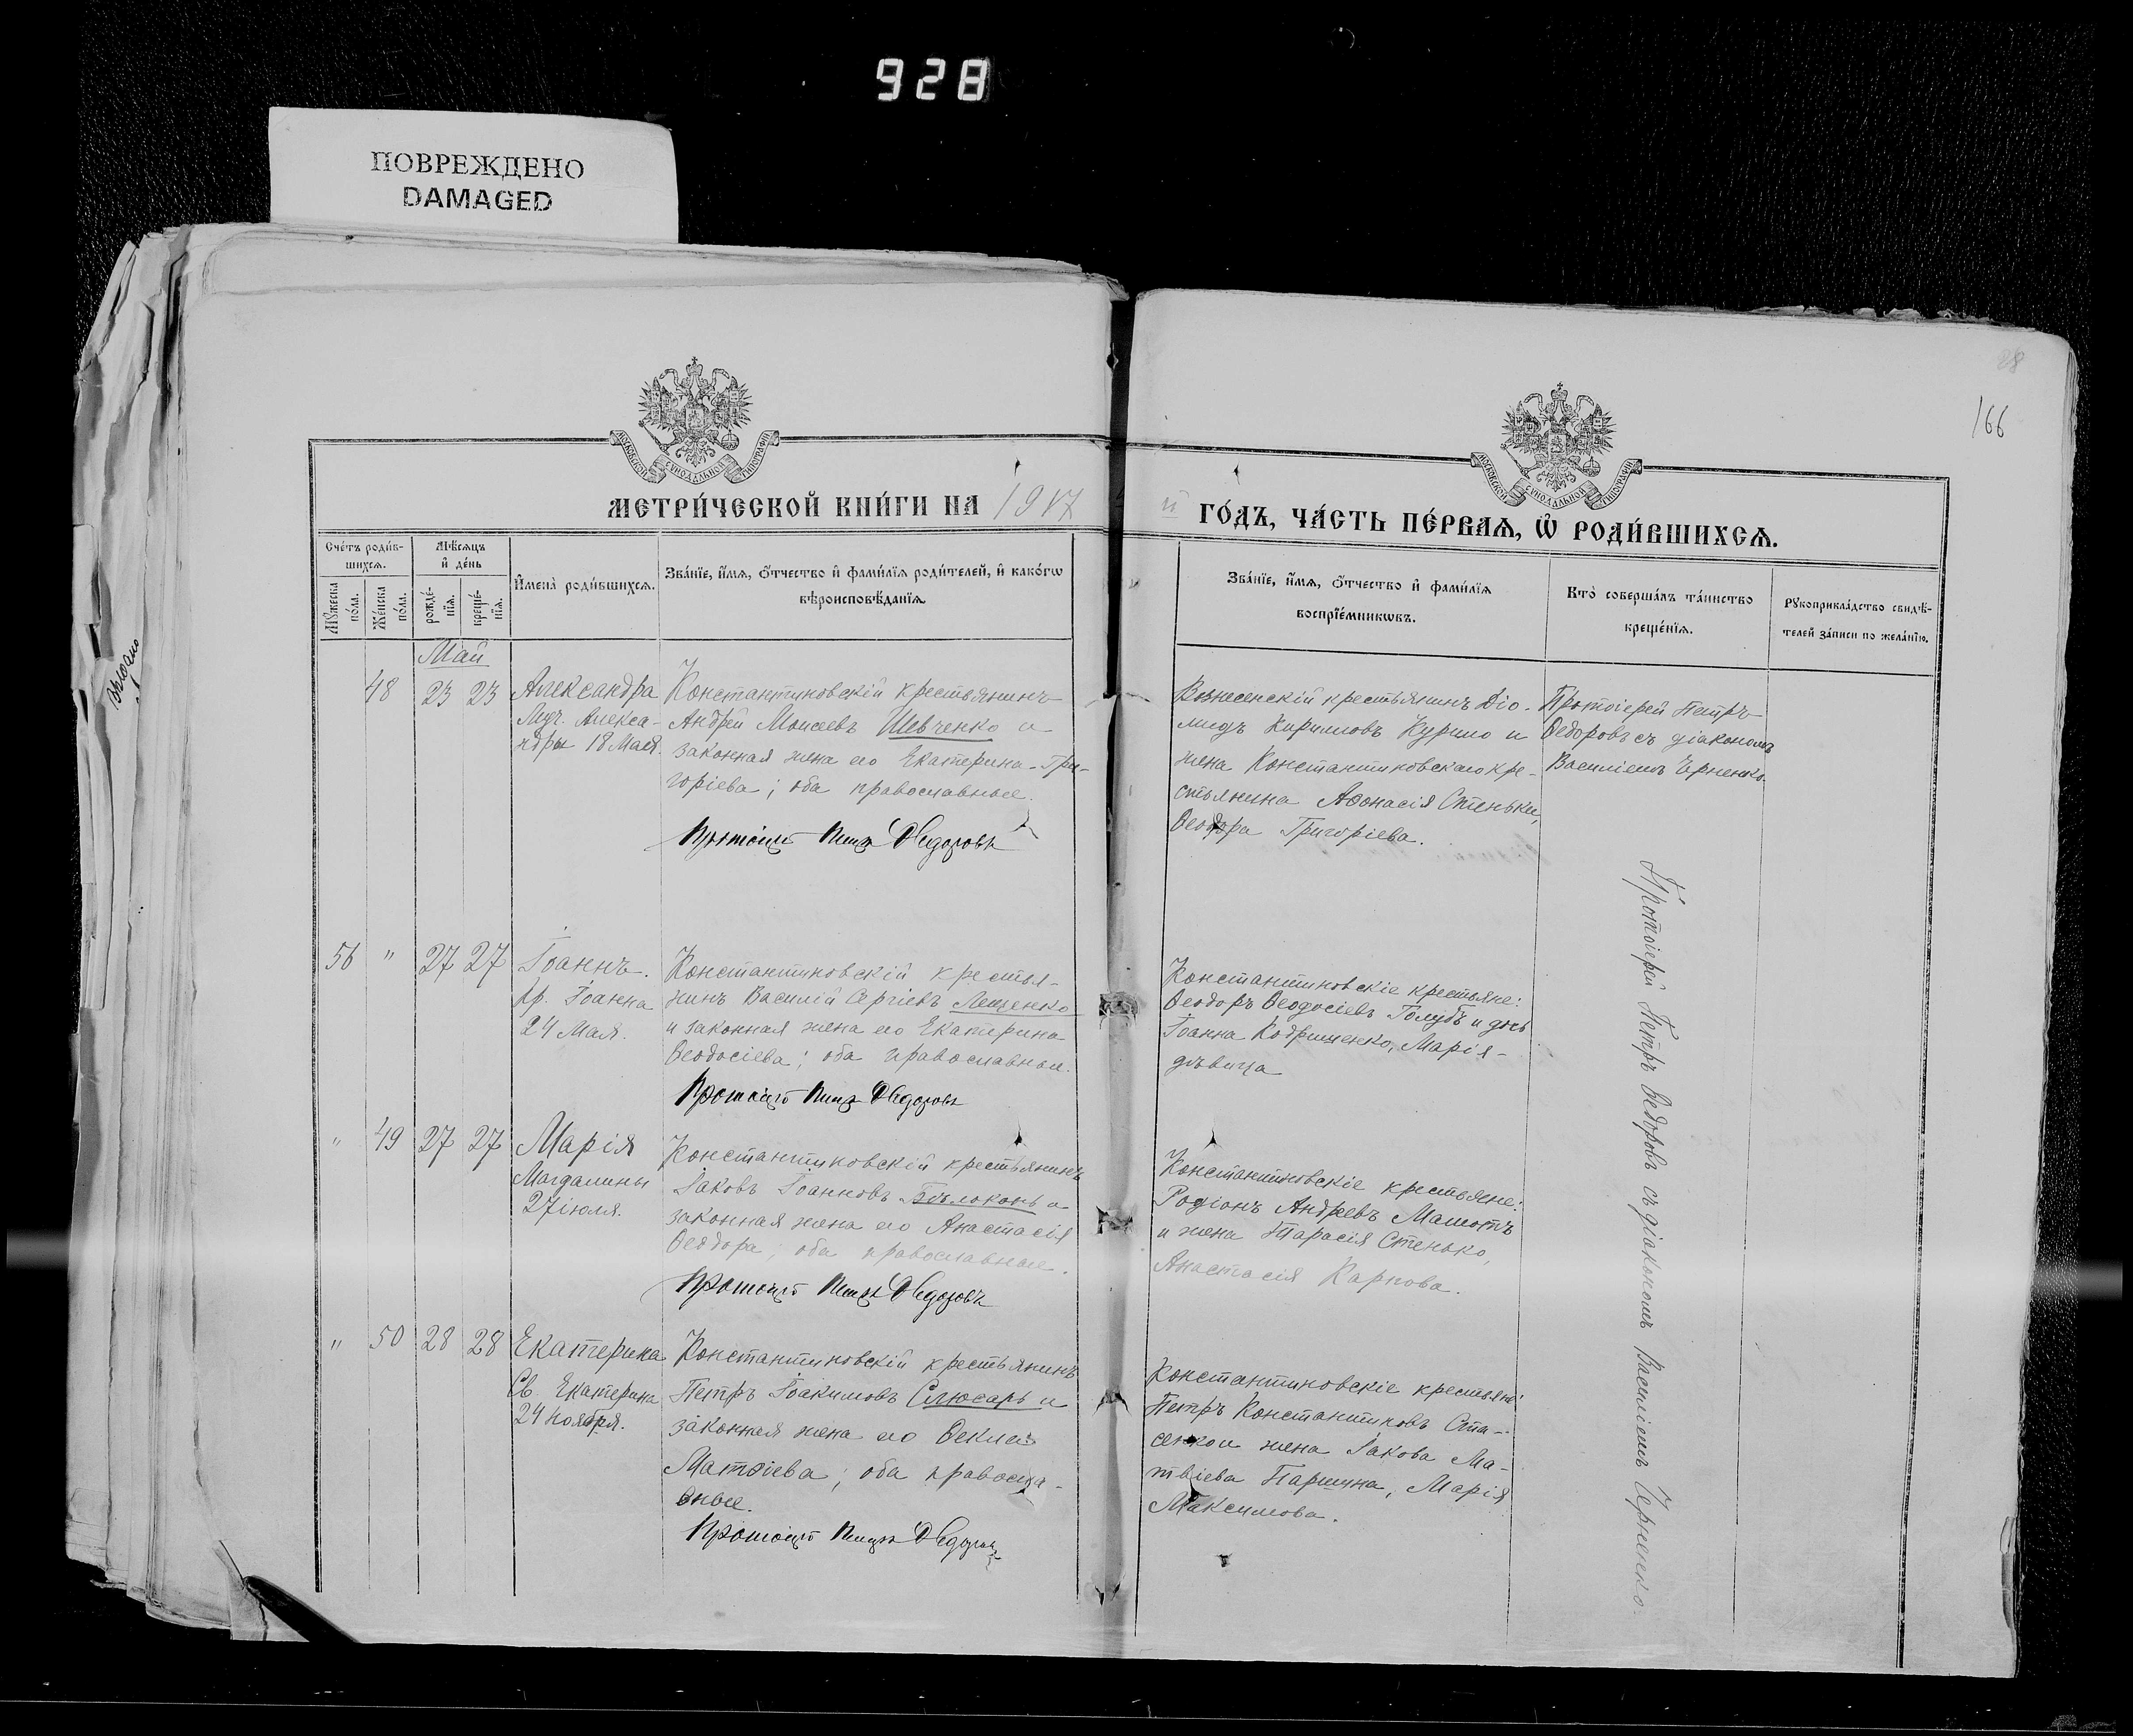 928
ПОВРЕЖДЕНО
DAMAGED
28
166
МОСКОВСКОЙ СѴНОДАЛЬНОЙ ТИПОГРАФІИ
МОСКОВСКОЙ СѴНОДАЛЬНОЙ ТИПОГРАФІИ
МЕТРИ́ЧЕСКОЙ КНИ́ГИ НА 1917
й ГО́ДЪ, ЧА́СТЬ ПЕ́РВАѦ, Ѽ РОДИ́ВШИХСѦ.
Сче́тъ роди́в-
шихсѧ.
Мѣ́сѧцъ
и҆ де́нь
Мꙋ́жеска
по́ла.
Же́нска
по́ла.
рожде́-
нїѧ.
креще́-
нїѧ.
И҆мена̀ роди́вшихсѧ.
Зва́нїе, и҆́мѧ, ѻ҆́тчество и҆ фами́лїѧ роди́телей, и҆ како́гѡ
вѣроисповѣ́данїѧ
Зва́нїе, и҆́мѧ, ѻ҆́тчество и҆ фами́лїѧ
воспрїе́мникѡвъ.
Кто̀ соверша́лъ та́инство
креще́нїѧ.
Рꙋкоприкла́дство свидѣ́-
телей за́писи по жела́нїю.
Май
48 23 23
Александра
Муч. Алекса-
ндры 18 Мая.
Константиновскій крестьянинъ
Андрей Моисеевъ Шевченко и
законная жена его Екатерина Гри-
горіева; оба православные.
Протоіерей Петръ Ѳедоровъ
Вознесенскій крестьянинъ Діо-
мидъ Кирилловъ Курило и
жена Константиновскаго кре-
стьянина Аѳонасія Стеньки,
Ѳеодора Григоріева.
Протоіерей Петръ
Ѳедоровъ съ діакономъ
Василіемъ Черненко.
56 " 27 27
Іоаннъ.
пр. Іоанна
24 Мая.
Константиновскій крестья-
нинъ Василій Сергіевъ Лещенко
и законная жена его Екатерина
Ѳеодосіева; оба православные.
Протоіерей Петръ Ѳедоровъ
Константиновскіе крестьяне:
Ѳеодоръ Ѳеодосіевъ Голубъ и дочь
Іоанна Кодрищенко, Марія-
дѣвица
" 49 27 27
Марія
Магдалины
27 іюля.
Константиновскій крестьянинъ
Іаковъ Іоанновъ Бѣлоконь и
законная жена его Анастасія
Ѳеодора; оба православные.
Протоіерей Петръ Ѳедоровъ
Константиновскіе крестьяне:
Родіонъ Андреевъ
и жена Тарасія Стенько,
Анастасія Карпова.
" 50 28 28
Екатерина
Св. Екатерина
24 Ноября.
Константиновскій крестьянинъ
Петръ Іоакимовъ Слюсарь и
законная жена его Ѳекла
Матѳіева; оба правосла-
вные.
Протоіерей Петръ Ѳедоровъ
Константиновскіе крестьяне:
Петръ Константиновъ Ста-
сенко и жена Іакова Ма-
твіева Паршина, Марія
Максимова.
Протоіерей Петръ Ѳедоровъ съ діакономъ Василіемъ Черненко.